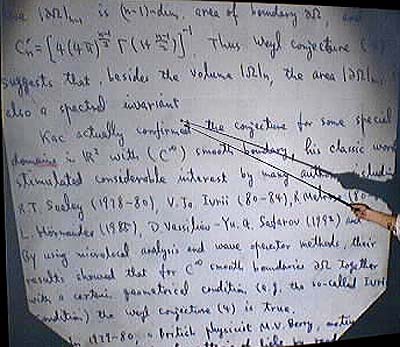 |∂Ω|ₙ₋₁ is (n-1)-dim. area of boundary ∂Ω, and
C'ₙ = [4(4π)^{(n-1)/2} Γ(1+(n-1)/2)]⁻¹. Thus Weyl conjecture
suggests that, besides the volume |Ω|ₙ, the area |∂Ω|ₙ₋₁
also a spectral invariant
Kac actually confirmed the conjecture for some special
domains in ℝ² with (C^∞) smooth boundary, his classic
stimulated considerable interest by many authors
R.T. Seeley (1978-80), V. Ja. Ivrii (80-84), R. Melrose (80
L. Hörmander (1985), D. Vasiliev - Yu. G. Safarov (1992) and
By using microlocal analysis and wave operator methods, their
results showed that for C^∞ smooth boundaries ∂Ω together
with a certain geometrical condition (e.g. the so-called Ivrii
condition) the Weyl conjecture (4) is true.
In 1979-80, a British physicist M.V. Berry,